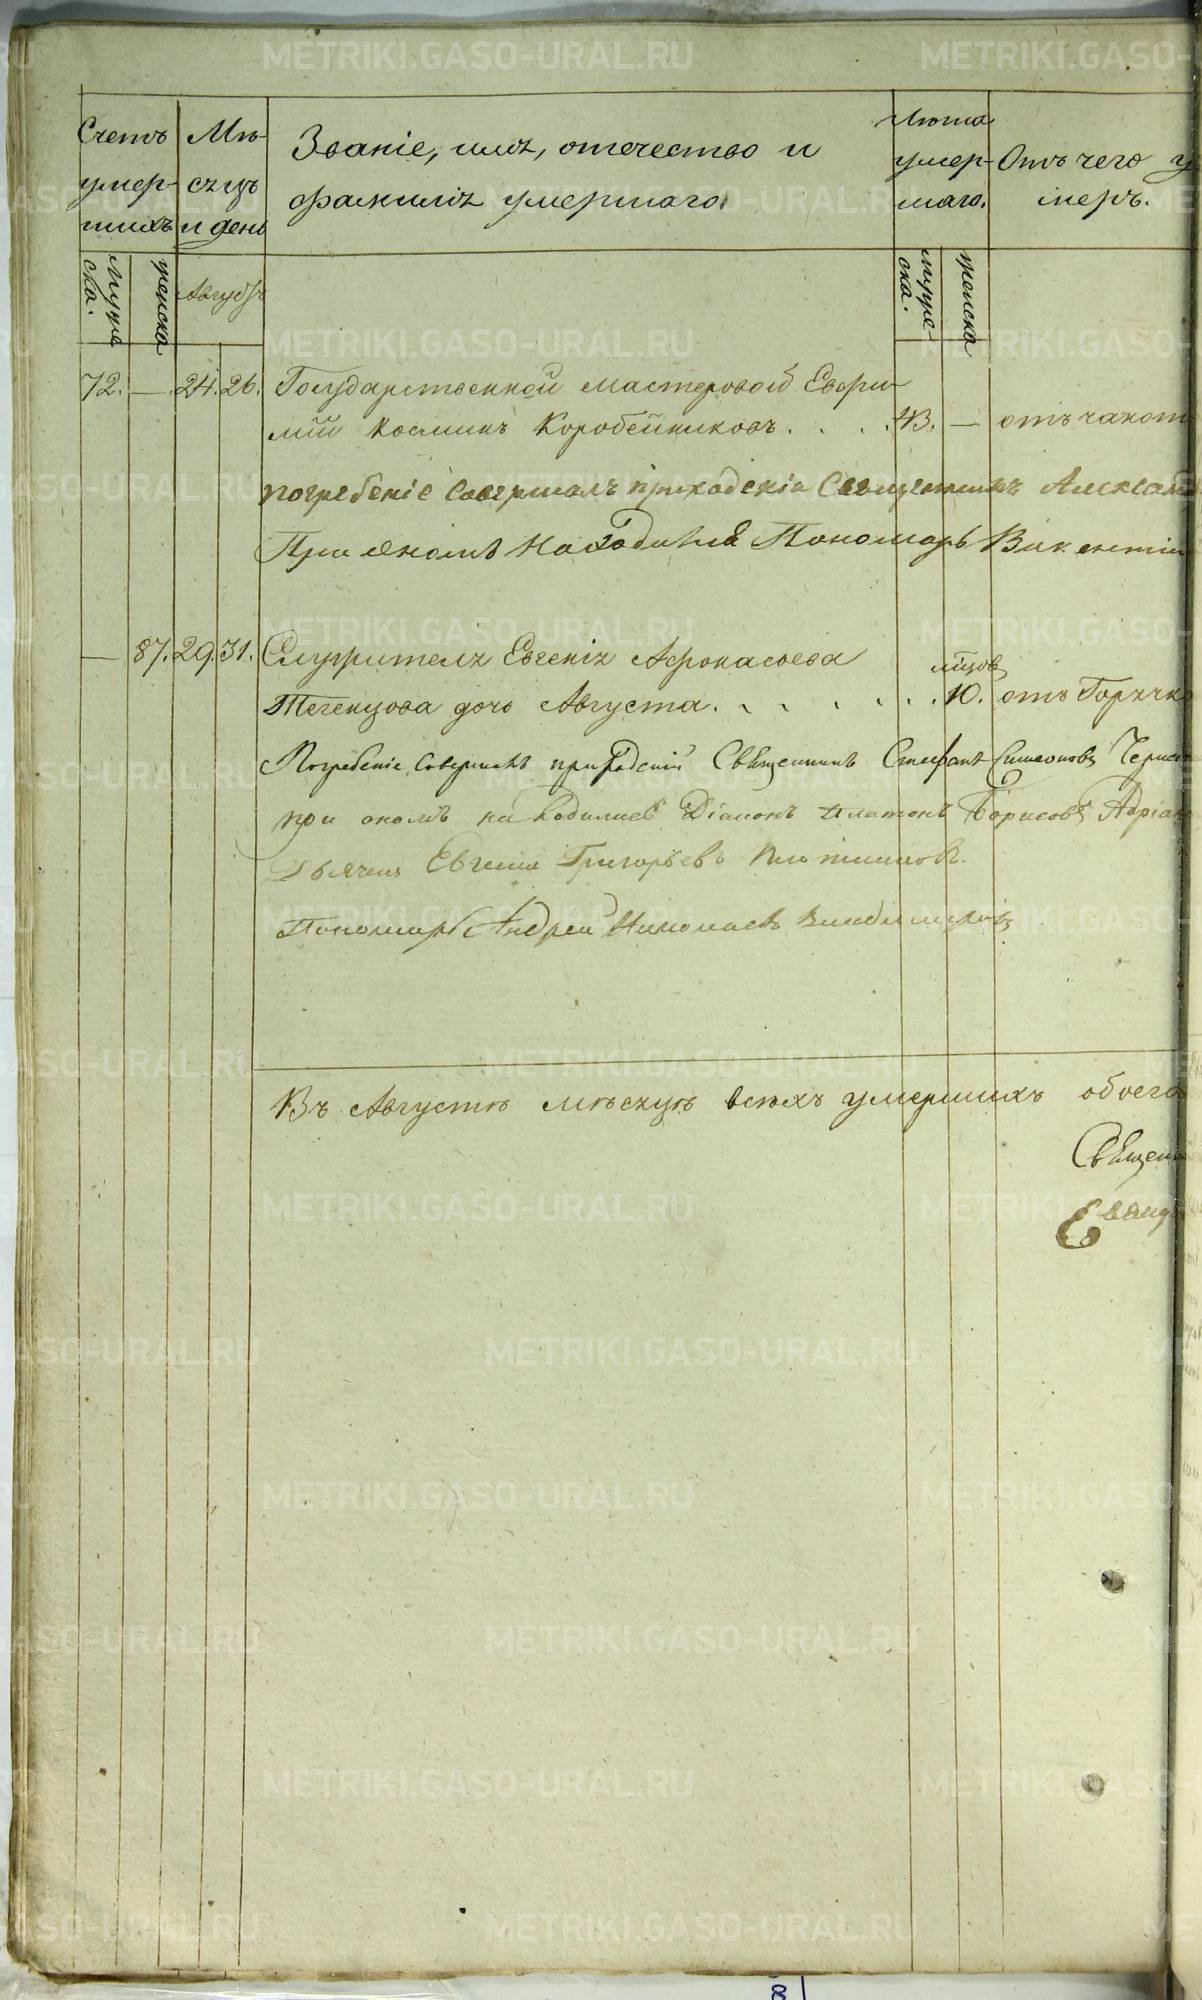 Счетъ умер-шихъ
Мѣ-сяцъ и день
Званіе, имя, отечество и
фамилія умершаго.
Лѣта умер-шаго.
Отъ чего у
меръ.
муже
ска.
женска
Августъ
муже-
ска.
женска
72. — 24. 26. Государственной мастеровой Евфи-
мій Косминъ Коробейниковъ . . . . 43. — отъ чахот
погребеніе совершалъ приходскій Священникъ Алексан
При ономъ находился Пономарь Викентій
— 87. 29. 31. Служителя Евгенія Афонасьева
мѣсцов
Тегенцова дочь Августа . . . . . . . 10. отъ Горячк
Погребеніе совершалъ приходскій Священникъ Стефанъ Симеоновъ Черн
при ономъ находились Діаконъ Платонъ Борисовъ Адріан
Дьячекъ Евгеній Григорьевъ
Пономарь Андрей Николаевъ Владимеровъ
Въ Августѣ мѣсяцѣ всѣхъ умершихъ обоего
Священ
METRIKI.GASO-URAL.RU